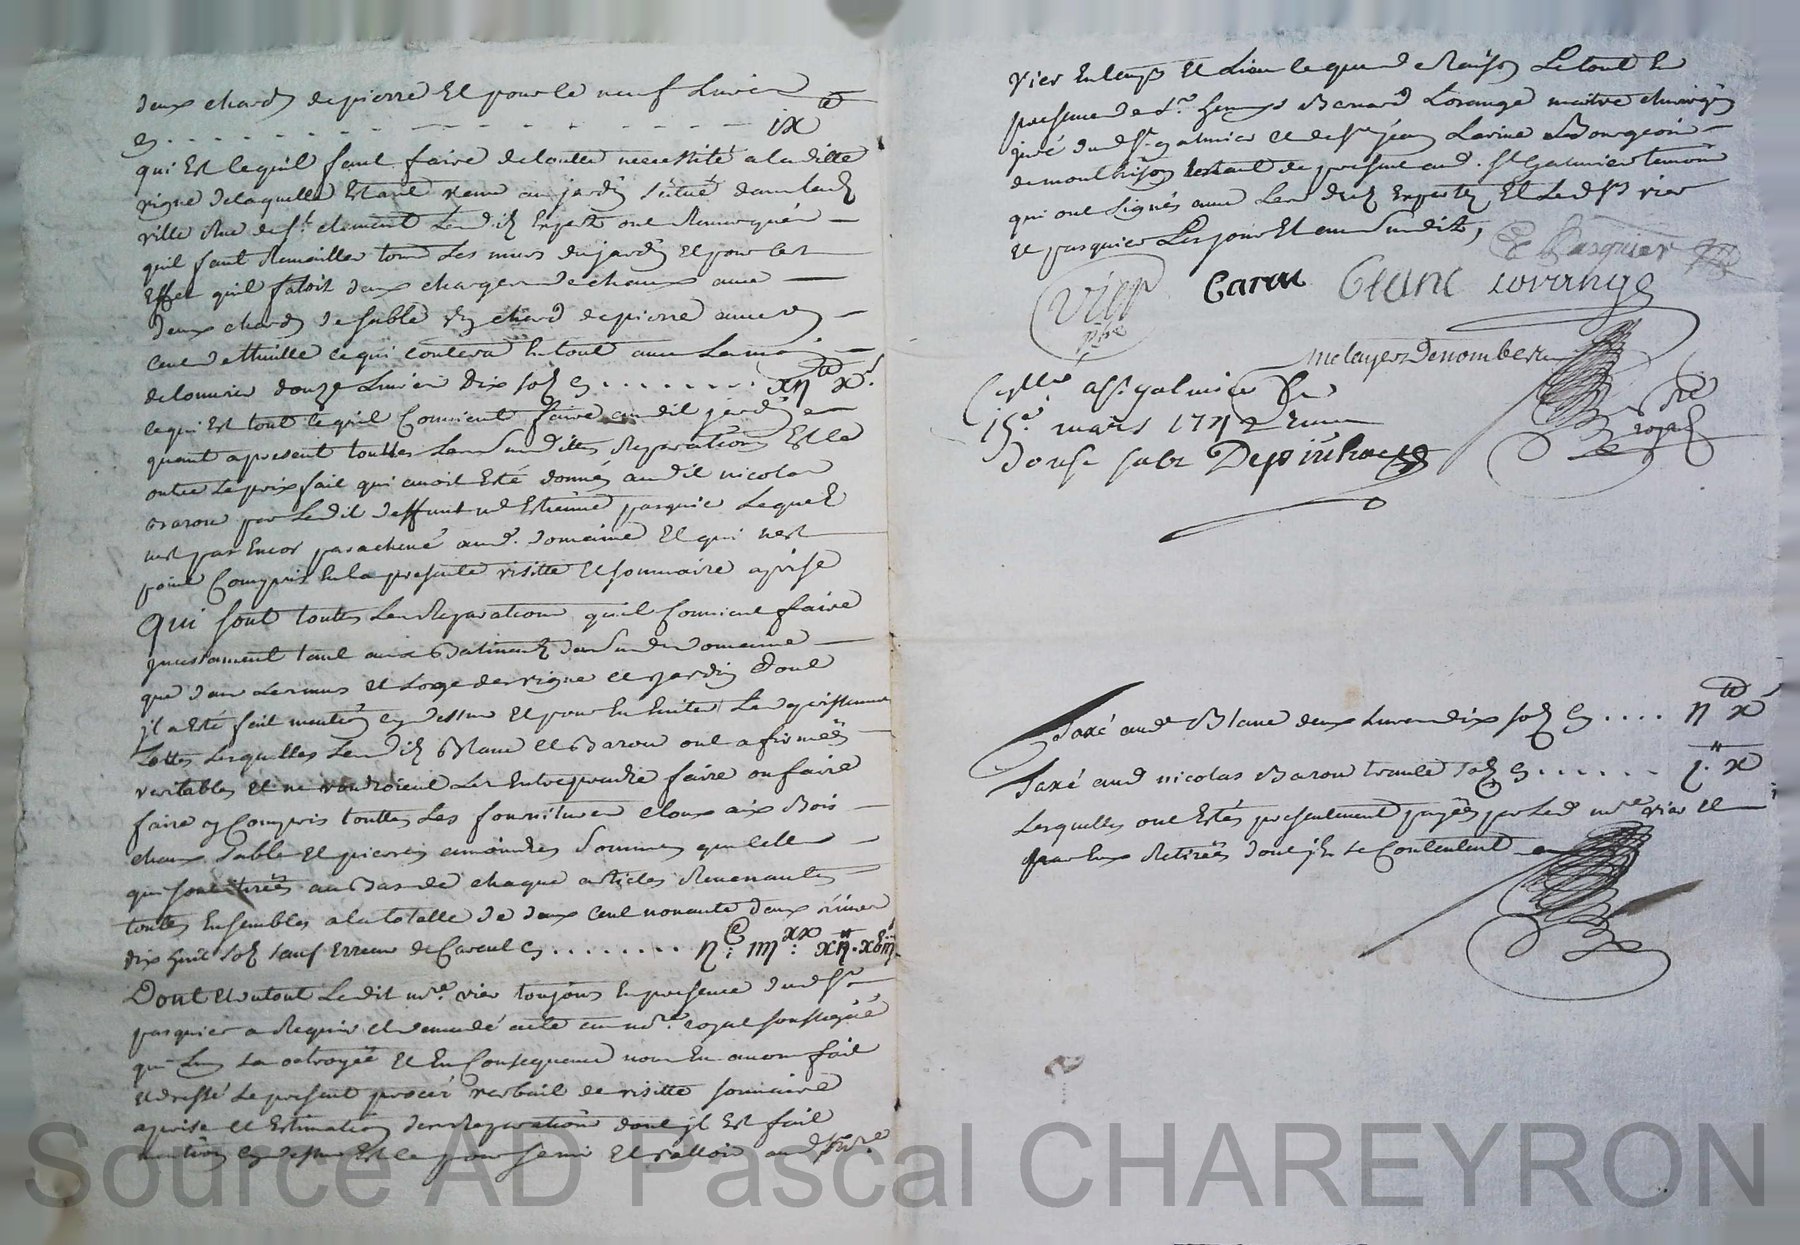 deux chards de pierre Et pour le neuf Livres
cy . . . . . . . . . . . . . . . . ix tt
qui Est le quil faut faire de toutte necessité a laditte
vigne de laquelle Estant venu au jardin scitué dans lad
ville Rue de st. clement Lesdits Experts ont Remarqués
quil faut Remailler tous Les murs du jardin Et pour cest
Effet quil faloit deux charges de chaux avec
deux chards de sable un chard de pierre avec un
cent de thuille ce qui coutera En tout avec La main
de louvrier douze Livres dix sols cy . . . . . . . . xii tt x s
ce qui Est tout le quil Convient faire audit jardin
quant a present touttes Les susdittes Reparations Est le
outre Le prix fait qui avoit Esté donnés audit nicolas
Baron par Ledit deffunt me Estienne pasquier Lequel
nest pas Encor parachevé aud. domaine Et qui nest
point Compris En la presente visitte Et sommaire aprise
Qui sont touttes Les Reparations quil Convient faire
que dans Les murs et Loge des vigne et jardin dont
jl a Esté fait mention cy dessus Et pour En Eviter Les
Lesquelles Lesdits Blanc et Baron ont afirmées
veritables Et ne voudroient Les Entreprendre faire ou faire
faire y Compris touttes Les fournitures cloux aix Bois
chaux sable Et pierres a moindres sommes que celles
qui sont tirées au Bas de chaque articles Revenantes
touttes Ensembles a la totalle de deux cent nonante deux Livres
dix huit sols sauf Erreur de Carcul cy . . . . . . . . ii c. iiii xx. xii tt. xviii s.
Dont Et du tout Ledit mre. vier toujours En presence dud sr
pasquier a Requis et demandé acte au nore. royal soussigné
qui Luy la octroyée Et En Consequence nous En avons fait
Et dressé Le present procès verbail de visitte sommaire
aprise et Estimation des Reparations dont jl Est fait
mention cy dessus Est le pour servir Et valloir aud
vier En temps Et Lieu ce que de Raison Le tout En
presence de sr. Bernard Lorange maitre chirurgien
juré dud st. galmier et de sr jean Bourgeois
de montbrison Estant de present aud. st Galmier temoins
qui ont signés avec Lesdits Experts Et Led sr vier
et pasquier Les jour Et an susdits,
E Pasquier
vier
ptre
Baron Blanc Lorange
Cllé a st. galmier Le
15e. mars 1742 Reçu
douse sols
nre
royal
Taxé aud Blanc deux Livres dix sols cy . . . . ii tt x s
Taxé aud nicolas Baron trante sols cy . . . . . . i tt. x s
Lesquelles ont Estés presentement payées par Led mre vier et
par Eux Retirées dont jls se Contentent
Source AD Pascal CHAREYRON